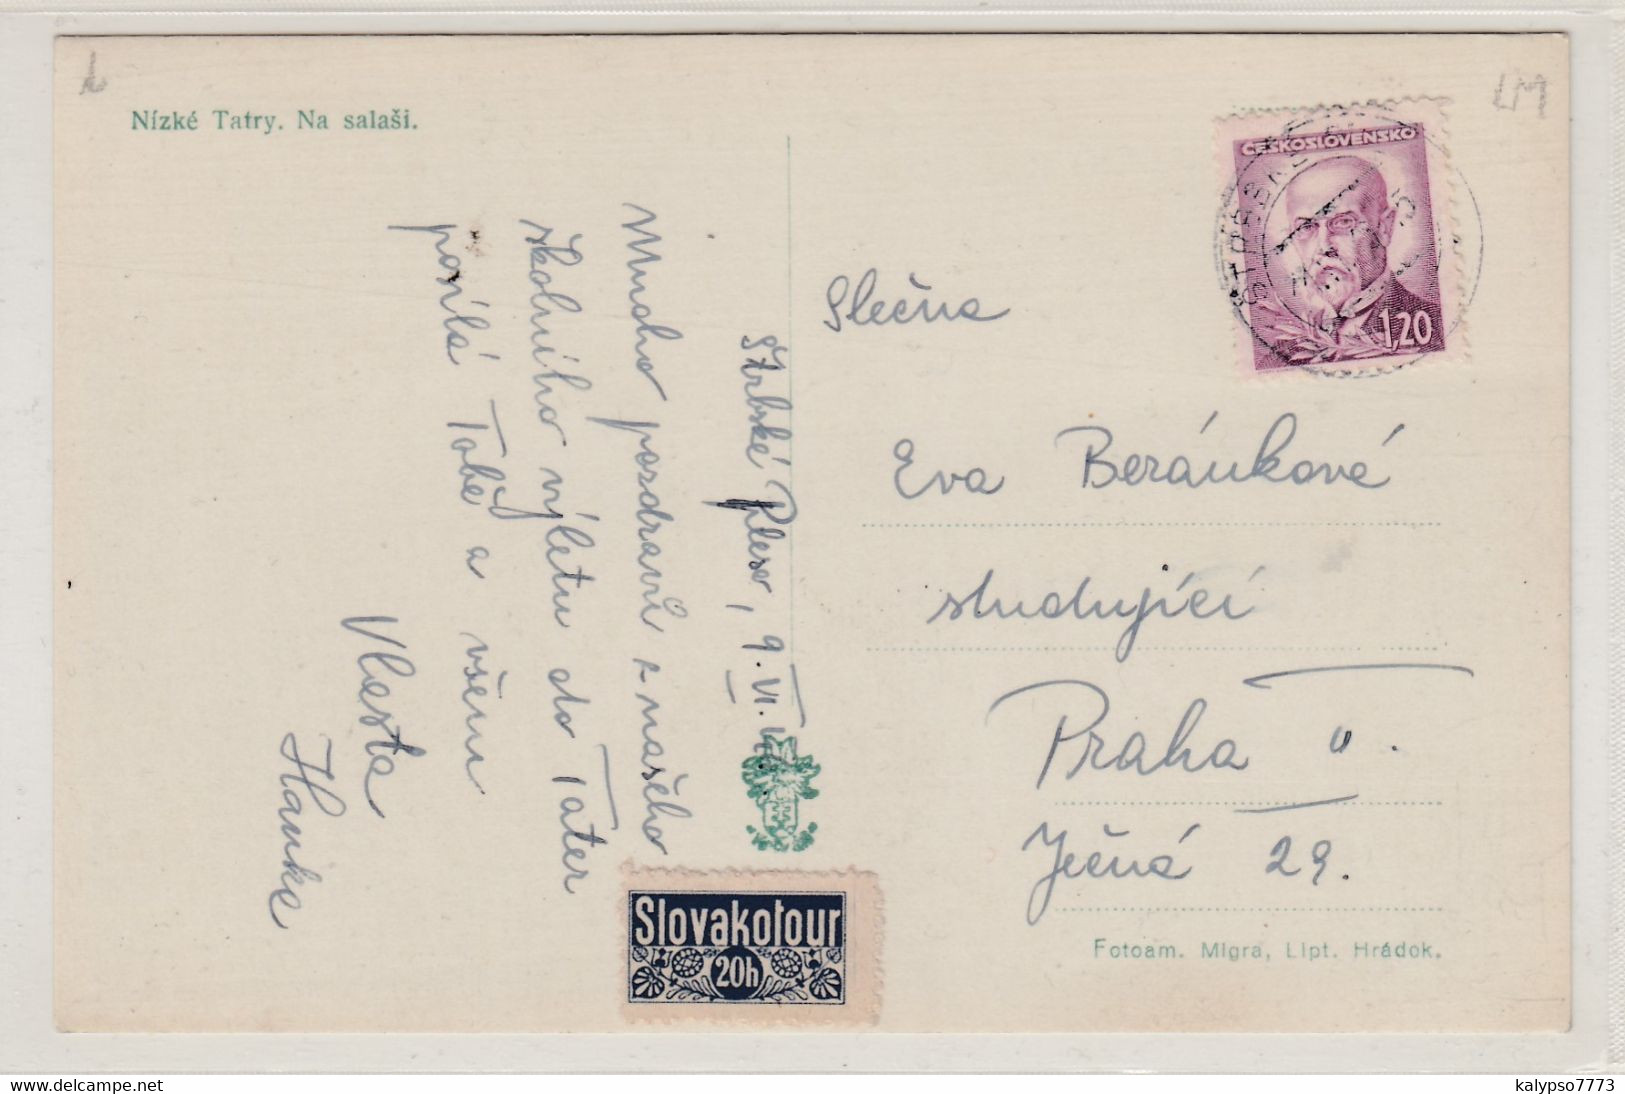 Nízké Tatry. Na salaši.
Štrbské Pleso, 9. VI.
Mnoho pozdravů z našeho
školního výletu do Tater
posílá Tobě a všem
Vlasta
ČESKOSLOVENSKO
1,20
Slečna
Eva Beránková
studující
Praha II.
Ječná 29.
Fotoam. Migra, Lipt. Hrádok.
Slovakotour
20h
kalypso7773
Click to see large picture